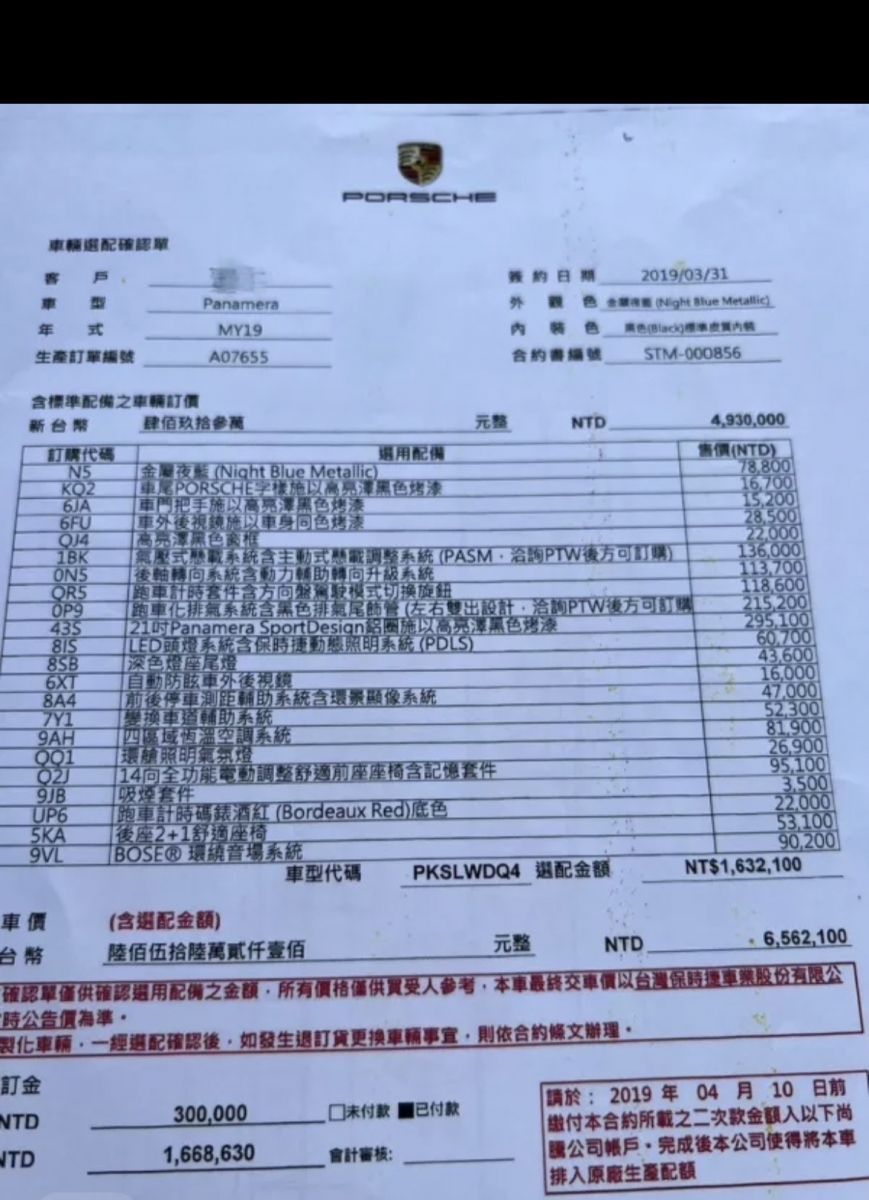 PORSCHE
車輛選配確認單
客 戶
簽 約 日 期 2019/03/31
車 型 Panamera
外 觀 色 金屬夜藍 (Night Blue Metallic)
年 式 MY19
內 裝 色 黑色(Black)標準皮質內裝
生產訂單編號 A07655
合約書編號 STM-000856
含標準配備之車輛訂價
新 台 幣 肆佰玖拾參萬 元整 NTD 4,930,000
訂購代碼 選用配備 售價(NTD)
N5 金屬夜藍 (Night Blue Metallic) 78,800
KQ2 車尾PORSCHE字樣施以高亮澤黑色烤漆 16,700
6JA 車門把手施以高亮澤黑色烤漆 15,200
6FU 車外後視鏡施以車身同色烤漆 28,500
QJ4 高亮澤黑色窗框 22,000
1BK 氣壓式懸載系統含主動式懸載調整系統 (PASM，洽詢PTW後方可訂購) 136,000
0N5 後軸轉向系統含動力輔助轉向升級系統 113,700
QR5 跑車計時套件含方向盤駕駛模式切換旋鈕 118,600
0P9 跑車化排氣系統含黑色排氣尾飾管 (左右雙出設計，洽詢PTW後方可訂購 215,200
43S 21吋Panamera SportDesign鋁圈施以高亮澤黑色烤漆 295,100
8IS LED頭燈系統含保時捷動態照明系統 (PDLS) 60,700
8SB 深色燈座尾燈 43,600
6XT 自動防眩車外後視鏡 16,000
8A4 前後停車測距輔助系統含環景顯像系統 47,000
7Y1 變換車道輔助系統 52,300
9AH 四區域恆溫空調系統 81,900
QQ1 環艙照明氣氛燈 26,900
Q2J 14向全功能電動調整舒適前座座椅含記憶套件 95,100
9JB 吸煙套件 3,500
UP6 跑車計時碼錶酒紅 (Bordeaux Red)底色 22,000
5KA 後座2+1舒適座椅 53,100
9VL BOSE® 環繞音場系統 90,200
車型代碼 PKSLWDQ4 選配金額 NT$1,632,100
車 價 (含選配金額)
台 幣 陸佰伍拾陸萬貳仟壹佰 元整 NTD 6,562,100
確認單僅供確認選用配備之金額，所有價格僅供買受人參考，本車最終交車價以台灣保時捷車業股份有限公
時公告價為準。
製化車輛，一經選配確認後，如發生退訂貨更換車輛事宜，則依合約條文辦理。
訂金
NTD 300,000 □未付款 ■已付款
NTD 1,668,630 會計審核:
請於： 2019 年 04 月 10 日前
繳付本合約所載之二次款金額入以下尚
騰公司帳戶。完成後本公司使得將本車
排入原廠生產配額